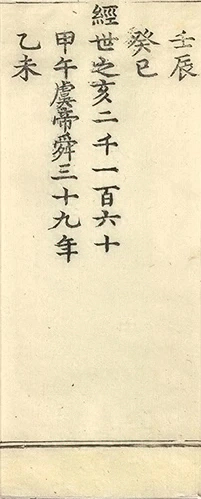 壬辰
癸巳
經世之亥二千一百六十
甲午虞帝舜三十九年
乙未